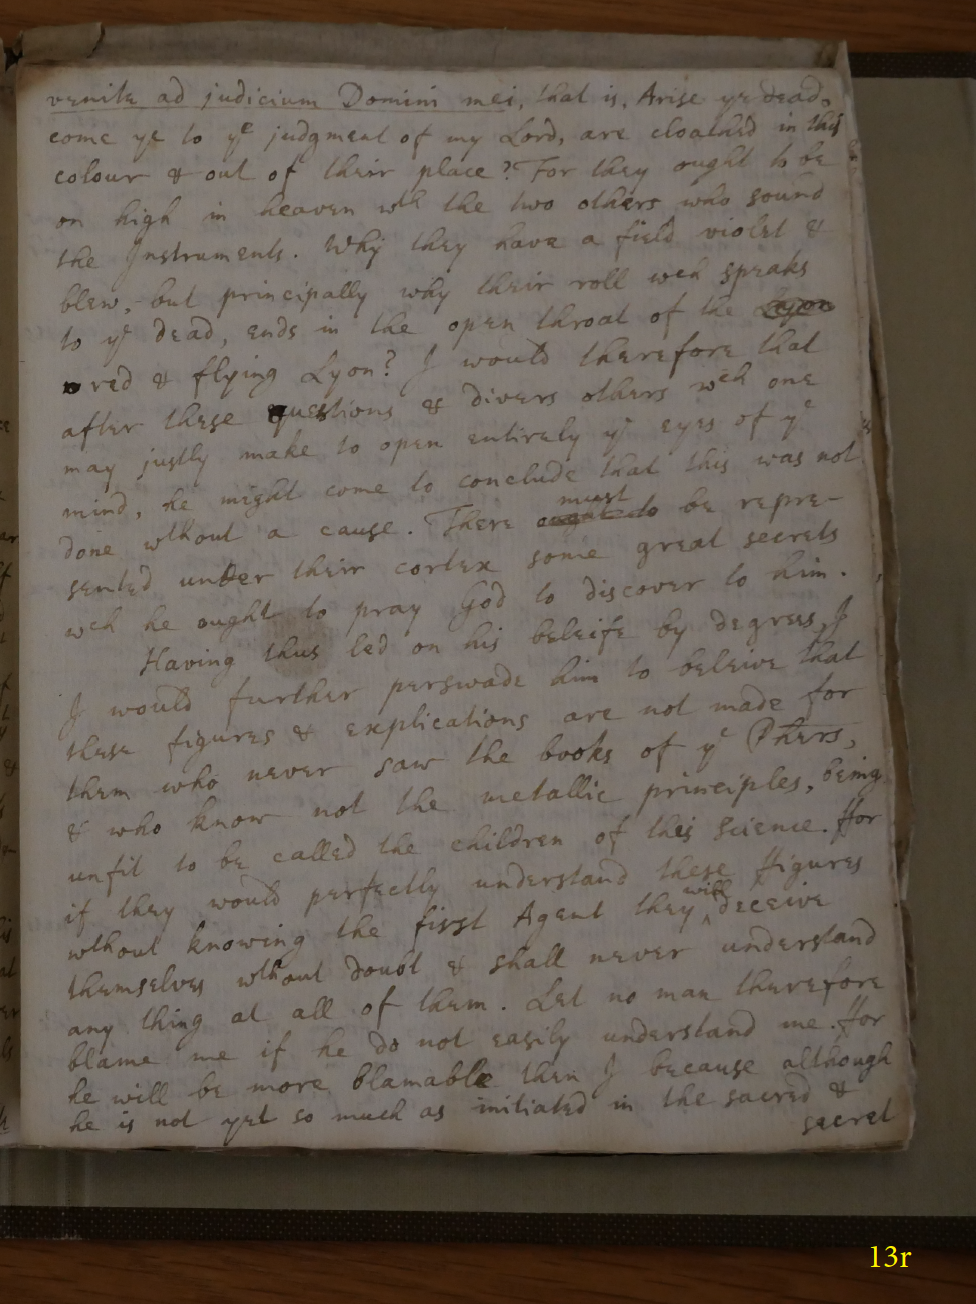 venite ad judicium Domini mei, that is, Arise ye dead,
come ye to ye judgment of my Lord, are cloathed in this
colour & out of their place? For they ought to be
on high in heaven wth the two others who sound
the Instruments. Why they have a field violet &
blew, but principally why their roll wch speaks
to ye dead, ends in the open throat of the Lyon
red & flying Lyon? I would therefore that
after these questions & divers others wch one
may justly make to open entirely ye eyes of ye
mind, he might come to conclude that this was not
done wthout a cause. There ought to must be repre-
sented under their cortex some great secrets
wch he ought to pray God to discover to him.
Having thus led on his beleife by degrees, I
I would further perswade him to beleive that
these figures & explications are not made for
them who never saw the books of ye Phers,
& who know not the metallic principles, being
unfit to be called the children of this science. ffor
if they would perfectly understand these ffigures
wthout knowing the first Agent they will deceive
themselves wthout doubt & shall never understand
any thing at all of them. Let no man therefore
blame me if he do not easily understand me. ffor
he will be more blamable then I because although
he is not yet so much as initiated in the sacred &
secret
13r